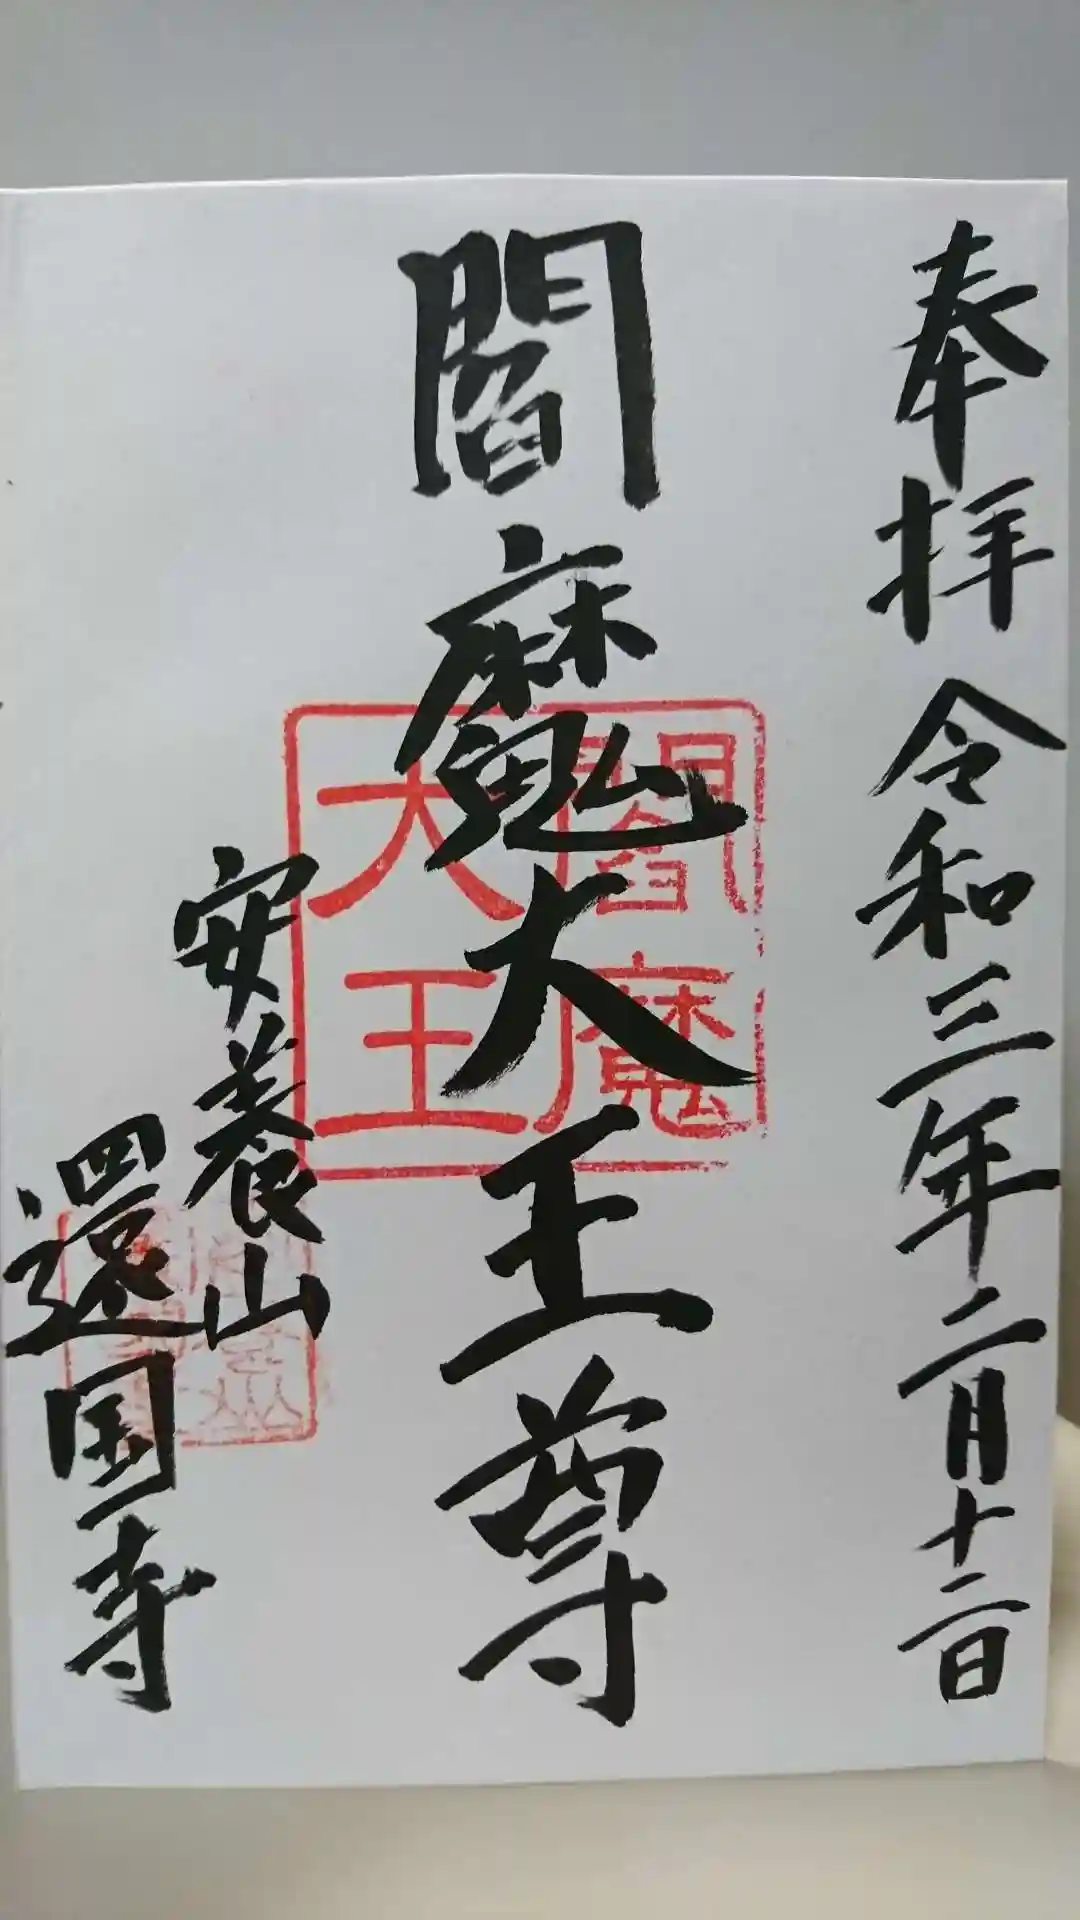 奉拝 令和三年二月十二日
閻魔大王尊
閻魔
大王
安養山
還国寺